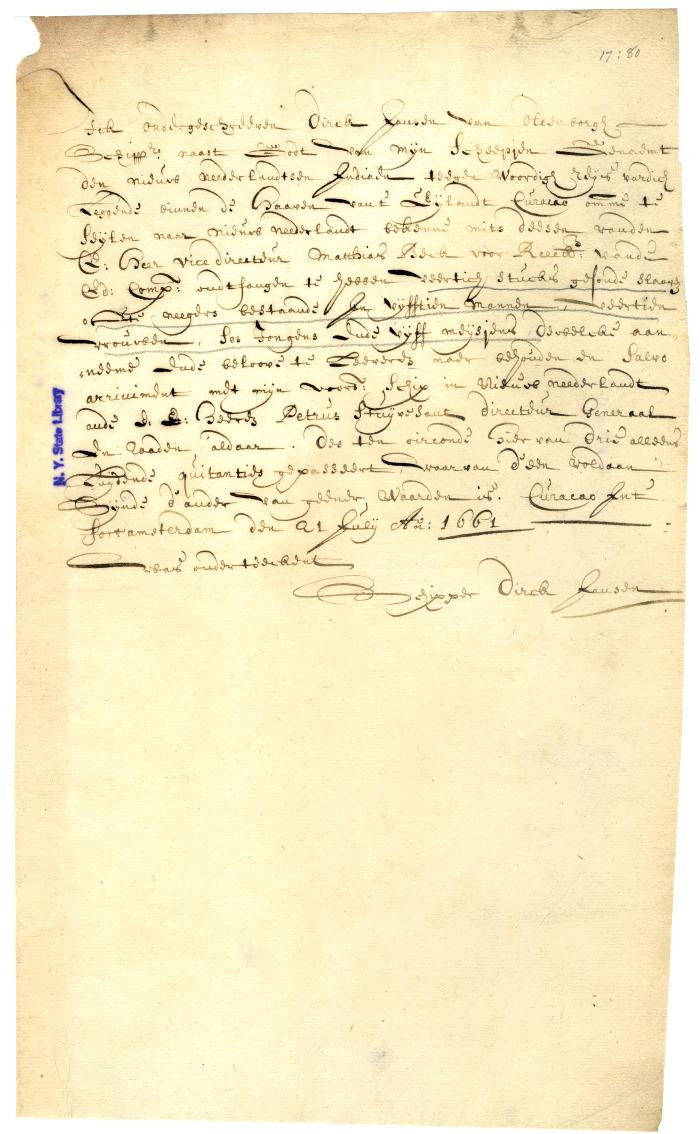 17:80
Ick ondergeschreeven Dirck Jansen van Oldenborgh
Schippr: naast Godt van mijn Scheepjen Genaemt
den nieuws neederlandtsen Indiaen teegen woordigh Reijs vardich
Leggende binnen de Haaven van't Eijlandt Curacao omme te
Seijlen naar nieuws nederlandt bekenne mits deesen vanden
E: Heer vice directeur Matthias Beck voor Reeckg: vande
Ed: Comp: ondtfangen te hebben veertich stucks gesonde slaaven
ofte neegers bestaande in vijfftien mannen, veertien
vrouwen, ses Jongens ende vijff meijsjens, deewelcke aan
neeme ende beloove te Leeveren naer behouden en Salvo
arriviment met mijn voors: Schip in Nieuws neederlandt
aende d: E: Heeren Petrus Stuijvesant directeur Generaal
en raaden, aldaar. Des ten oirconde hier van drie alleens
Luijdende quitanties gepasseert, waarvan d'een voldaan
Sijnde d'ander van geener Waarden is. Curacao Int
fort amsterdam den 21 Julij Ao: 1661
was onderteeckent
Schipper Dirck Jansen
N. Y. State Library